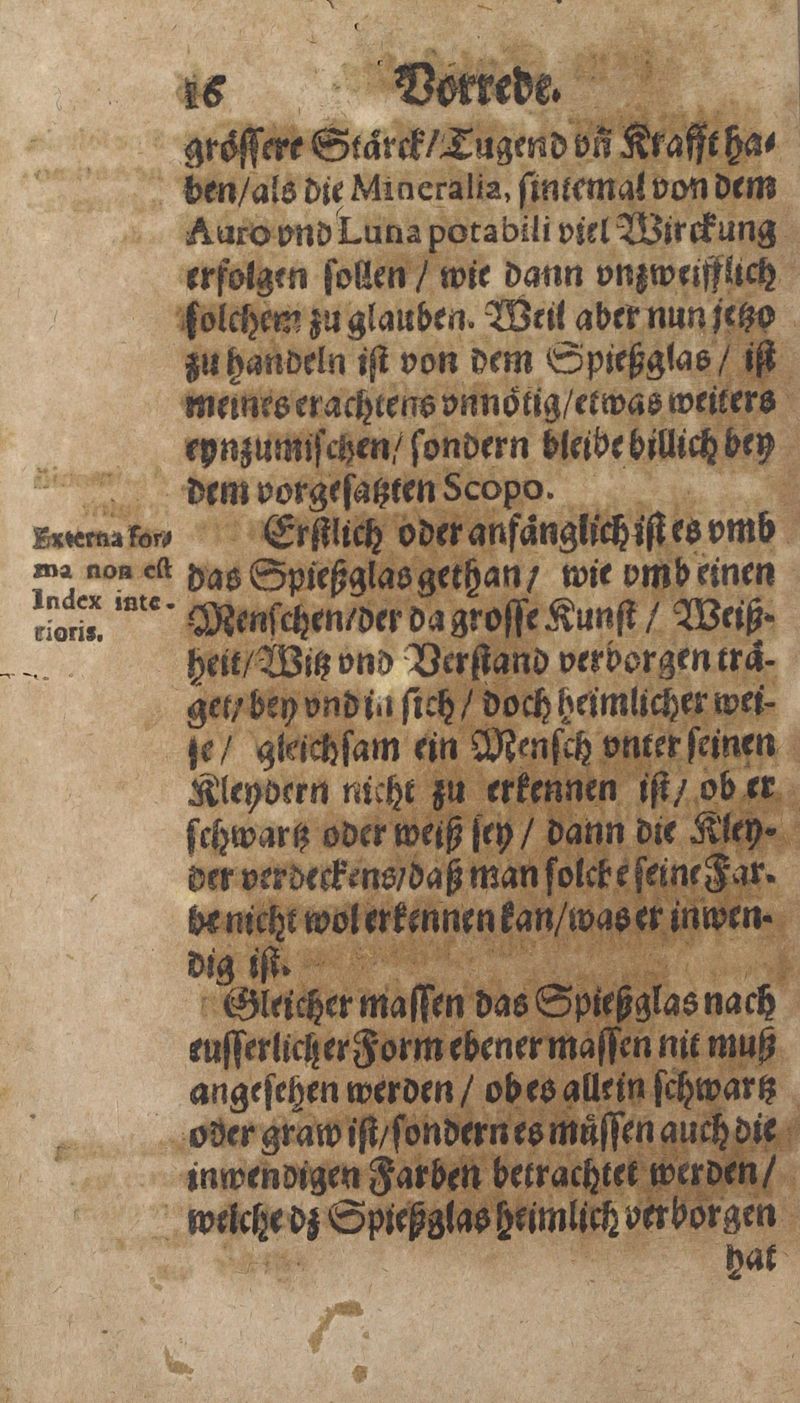 16 Vorrede.
gröſſere Stärck/Tugend vñ Krafft ha-
ben/als die Mineralia, ſintemal von dem
Auro vnd Luna potabili viel Wirckung
erfolgen ſollen / wie dann vnzweifflich
ſolchem zu glauben. Weil aber nun jetzo
zu handeln iſt von dem Spießglas / iſt
meines erachtens vnnötig/etwas weiters
eynzumiſchen/ ſondern bleibe billich bey
dem vorgeſatzten Scopo.
Externa for-
ma non eſt
Index inte-
rioris.
Erſtlich oder anfänglich iſt es vmb
das Spießglas gethan / wie vmb einen
Menſchen/der da groſſe Kunſt / Weiß-
heit/Witz vnd Verſtand verborgen trä-
get/ bey vnd in ſich / doch heimlicher wei-
ſe / gleichſam ein Menſch vnter ſeinen
Kleydern nicht zu erkennen iſt / ob er
ſchwartz oder weiß ſey / dann die Kley-
der verdeckens/daß man ſolche ſeine Far-
be nicht wol erkennen kan/was er inwen-
dig iſt.
Gleicher maſſen das Spießglas nach
euſſerlicher Form ebener maſſen nit muß
angeſehen werden / ob es allein ſchwartz
oder graw iſt/ſondern es müſſen auch die
inwendigen Farben betrachtet werden/
welche dz Spießglas heimlich verborgen
hat